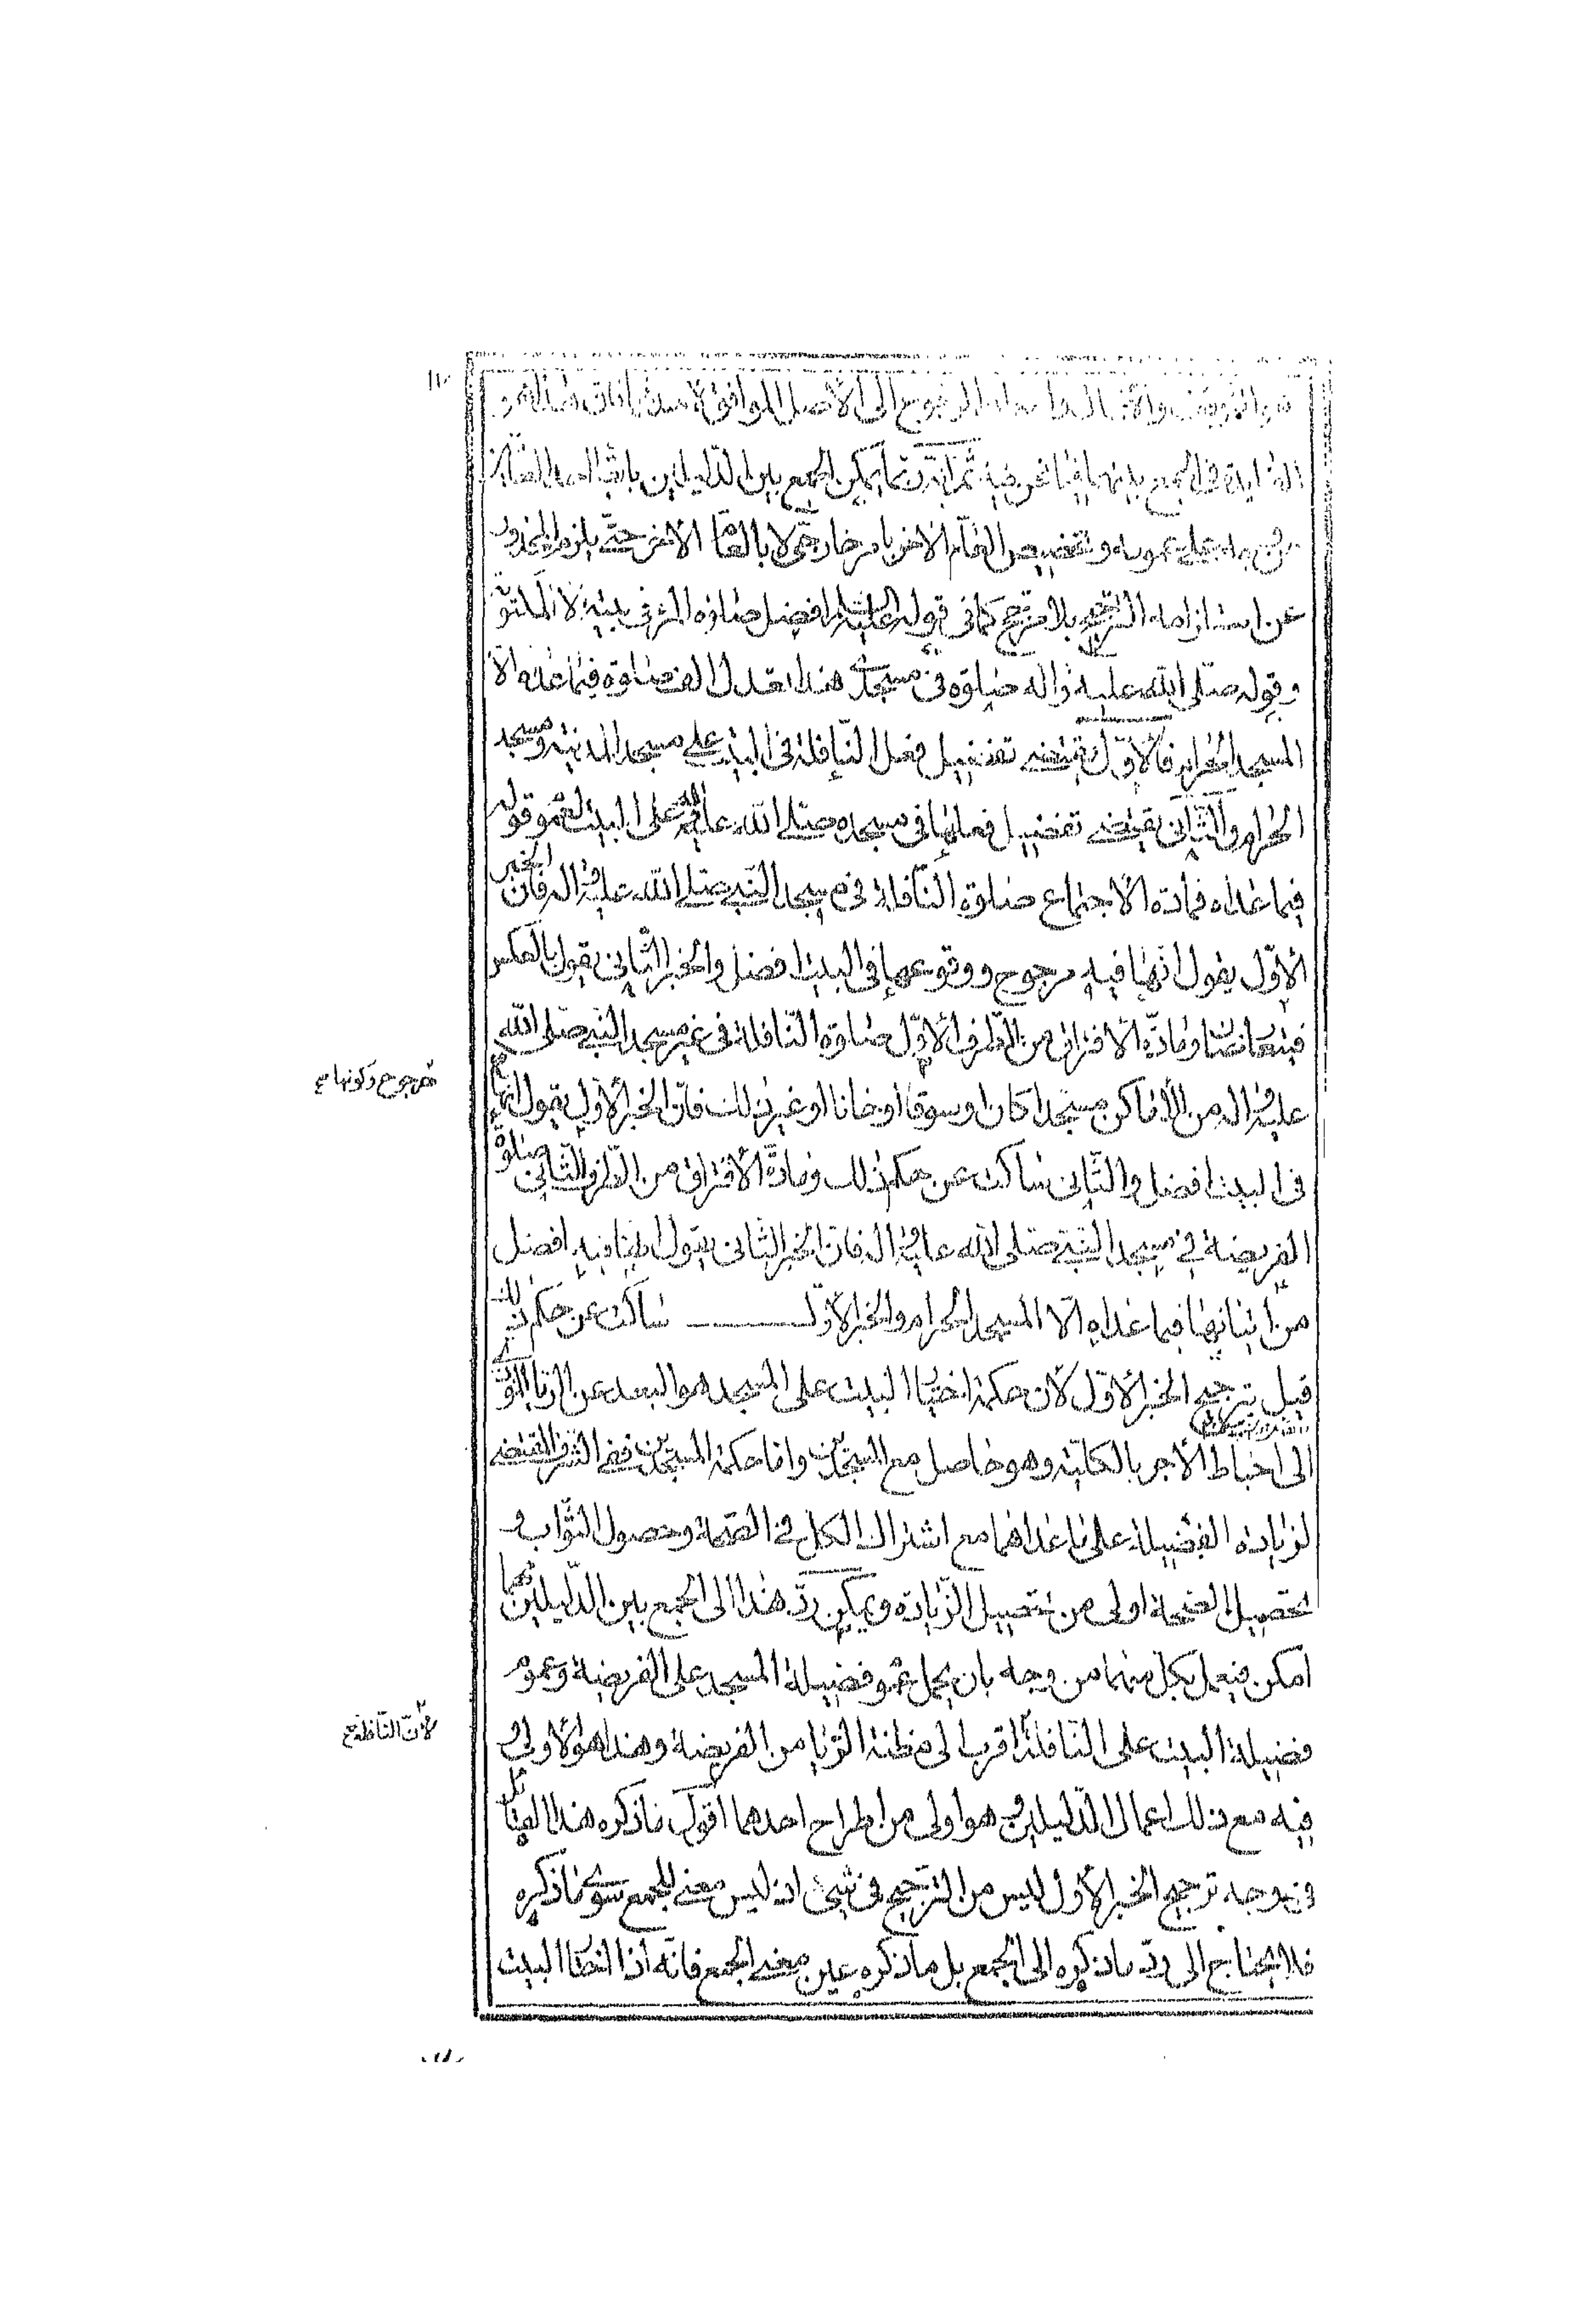 الرجوع الى الأصل الموافق لأحدهما
فى الجمع بينهما فيما نحن فيه ثم انه ربما يمكن الجمع بين الدليلين بابقاء احد العامين
على عمومه وتخصيص العام الاخر بامر خارجى لا بالعام الاخر حتى يلزم المحذور
من استلزامه الترجيح بلا مرجح كما فى قوله عليه السلام افضل صلوة المرء فى بيته الا المكتوبة
وقوله صلى الله عليه واله صلوة فى مسجدى هذا تعدل الف صلوة فيما عداه الا
المسجد الحرام فالأول يقتضى تفضيل فعل النافلة فى البيت على مسجد المدينة ومسجد
الحرام والثانى يقتضى تفضيل فعلها فى مسجده صلى الله عليه واله على البيت لعموم قوله
فيما عداه فمادة الاجتماع صلوة النافلة فى مسجد النبى صلى الله عليه واله فان الخبر
الأول يقول انها فيه مرجوح ووقوعها فى البيت افضل والخبر الثانى يقول بالعكس
فيتعارضان ومادة الافتراق من الطرف الأول صلوة النافلة فى غير مسجد النبى صلى الله
عليه واله من الأماكن مسجدا كان او سوقا او خانا او غير ذلك فان الخبر الأول يقول انها
مرجوح وكونها صح
فى البيت افضل والثانى ساكت عن حكم ذلك ومادة الافتراق من الطرف الثانى صلوة
الفريضة فى مسجد النبى صلى الله عليه واله فان الخبر الثانى يقول انها فيه افضل
من اتيانها فيما عداه الا المسجد الحرام والخبر الأول ساكت عن حكم ذلك
قيل بترجيح الخبر الأول لان حكمة اختيار البيت على المسجد هو البعد عن الريا المؤدى
الى احباط الأجر بالكلية وهو حاصل مع المسجدين واما حكمة المسجدين فهى الشرف المقتضى
لزيادة الفضيلة على ما عداهما مع اشتراك الكل فى الصحة وحصول الثواب و
تحصيل الصحة اولى من تحصيل الزيادة ويمكن رد هذا الى الجمع بين الدليلين مهما
امكن فيعمل بكل منهما من وجه بان يحمل عموم فضيلة المسجد على الفريضة وعموم
فضيلة البيت على النافلة اقرب الى مظنة الريا من الفريضة وهذا هو الأولى و
لأن النافلة صح
فيه مع ذلك اعمال الدليلين وهو اولى من اطراح احدهما اقول ما ذكره هذا القائل
فى وجه ترجيح الخبر الأول ليس من الترجيح فى شىء اذ ليس معنى للجمع سوى ما ذكره
فلا يحتاج الى رد ما ذكره الى الجمع بل ما ذكره عين معنى الجمع فانه اذا البيت